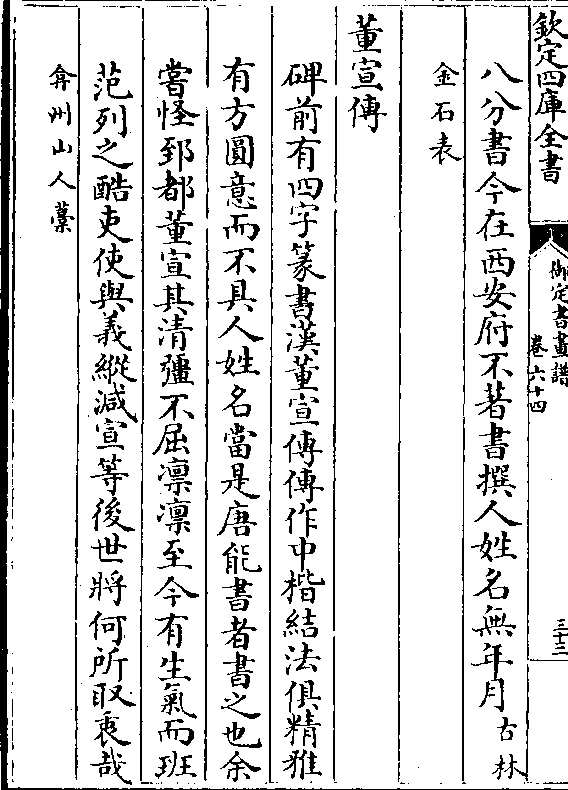 欽定四庫全書
御定書畫譜
卷六十四
三十三
八分書今在西安府不著書撰人姓名無年月古林
金石表
董宣傳
碑前有四字篆書漢董宣傳傳作中楷結法俱精雅
有方圓意而不具人姓名當是唐能書者書之也余
嘗怪郅都董宣其清彊不屈凛凛至今有生氣而班
范列之酷吏使與義縱減宣等後世將何所取衷哉
弇州山人藁